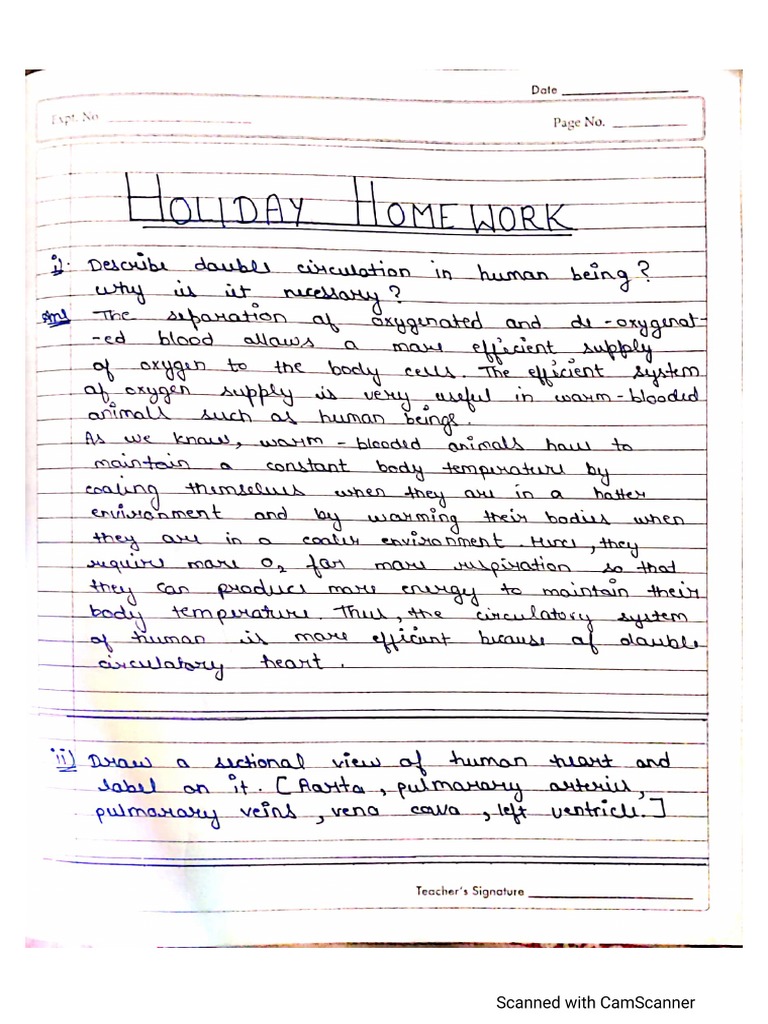 Date
Expt. No
Page No.
HOLIDAY HOME WORK
i) Describe double circulation in human being?
why is it necessary?
Ans The separation of oxygenated and de-oxygenat-
-ed blood allows a more efficient supply
of oxygen to the body cells. The efficient system
of oxygen supply is very useful in warm-blooded
animals such as human beings.
As we know, warm-blooded animals have to
maintain a constant body temperature by
cooling themselves when they are in a hotter
environment and by warming their bodies when
they are in a cooler environment. Hence, they
require more O2 for more respiration so that
they can produce more energy to maintain their
body temperature. Thus, the circulatory system
of human is more efficient because of double
circulatory heart.
ii) Draw a sectional view of human heart and
label on it. [Aarta, pulmarary arteries,
pulmarary veins, vena cava, left ventricle.]
Teacher's Signature
Scanned with CamScanner